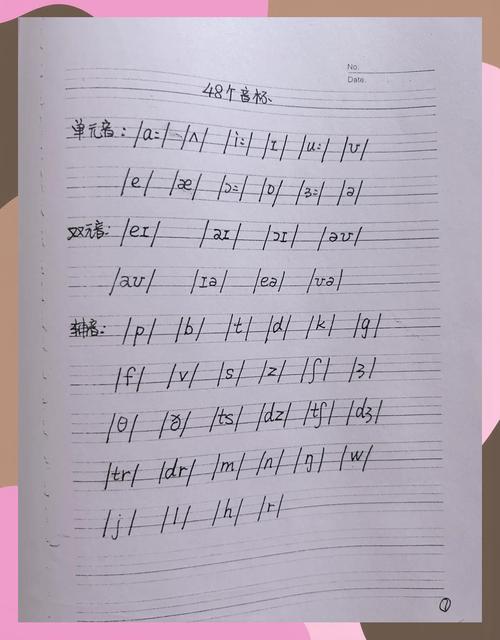 No.
Date.
48个音标
单元音: /ɑ:/ /ʌ/ /i:/ /ɪ/ /u:/ /ʊ/
/e/ /æ/ /ɔ:/ /ɒ/ /ɜ:/ /ə/
双元音: /eɪ/ /aɪ/ /ɔɪ/ /əʊ/
/aʊ/ /ɪə/ /eə/ /ʊə/
辅音: /p/ /b/ /t/ /d/ /k/ /g/
/f/ /v/ /s/ /z/ /ʃ/ /ʒ/
/θ/ /ð/ /ts/ /dz/ /tʃ/ /dʒ/
/tr/ /dr/ /m/ /n/ /ŋ/ /w/
/j/ /l/ /h/ /r/
①